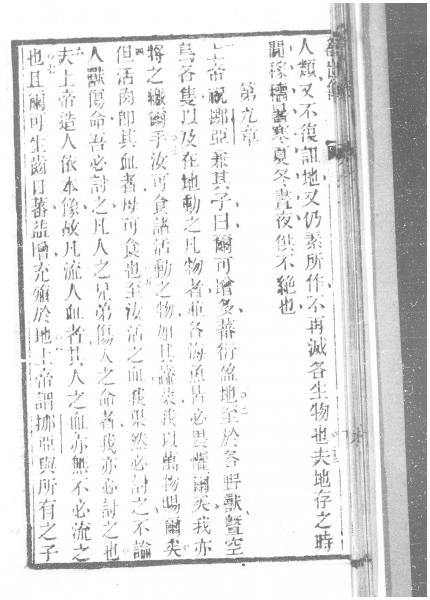 人類又不復詛地又仍素所作不再滅各生物也夫地存之時
間稼穡暑寒夏冬晝夜俱不絕也
第九章
上帝祝挪亞兼其子曰爾可增多蕃衍盈地至於各野獸曁空
鳥各隻以及在地動之凡物者並各海魚皆必畏懼爾矣我亦
將之繳爾手汝可食諸活動之物如其蔬菜我以萬物賜爾矣
但活肉卽其血者毋可食也至汝活之血我果然必討之不論
人獸傷命吾必討之凡人之兄弟傷人之命者我亦必討之也
夫上帝造人依本像故凡流人血者其人之血亦無不必流之
也且爾可生齒日蕃益增充殖於地上帝謂挪亞與所有之子